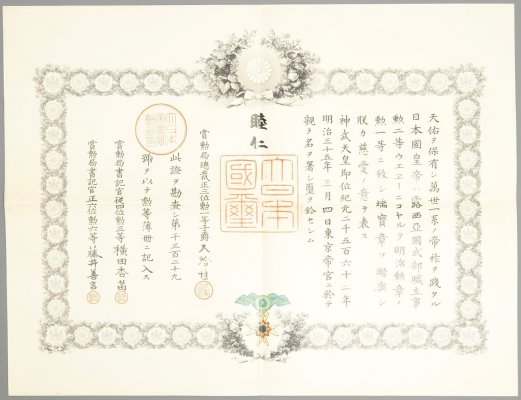 天佑ヲ保有シ萬世一系ノ帝祚ヲ踐タル
日本國皇帝ハ露西亞國式部職主事
勲二等ウエヱーニコヤルヲ明治勲章ノ
勲一等ニ敍シ瑞寶章ヲ贈與シ
朕カ慈愛ノ意ヲ表ス
神武天皇即位紀元二千五百六十二年
明治三十五年三月四日東京帝宮ニ於テ
親ラ名ヲ署シ璽ヲ鈐セシム
睦仁
大日本國璽
賞勲局總裁正三位勲一等子爵大給恒
此證ヲ勘査シ第千三百二十九
號ヲ以テ勲等簿冊ニ記入ス
賞勲局書記官從四位勲三等横田香苗
賞勲局書記官正六位勲六等藤井善言